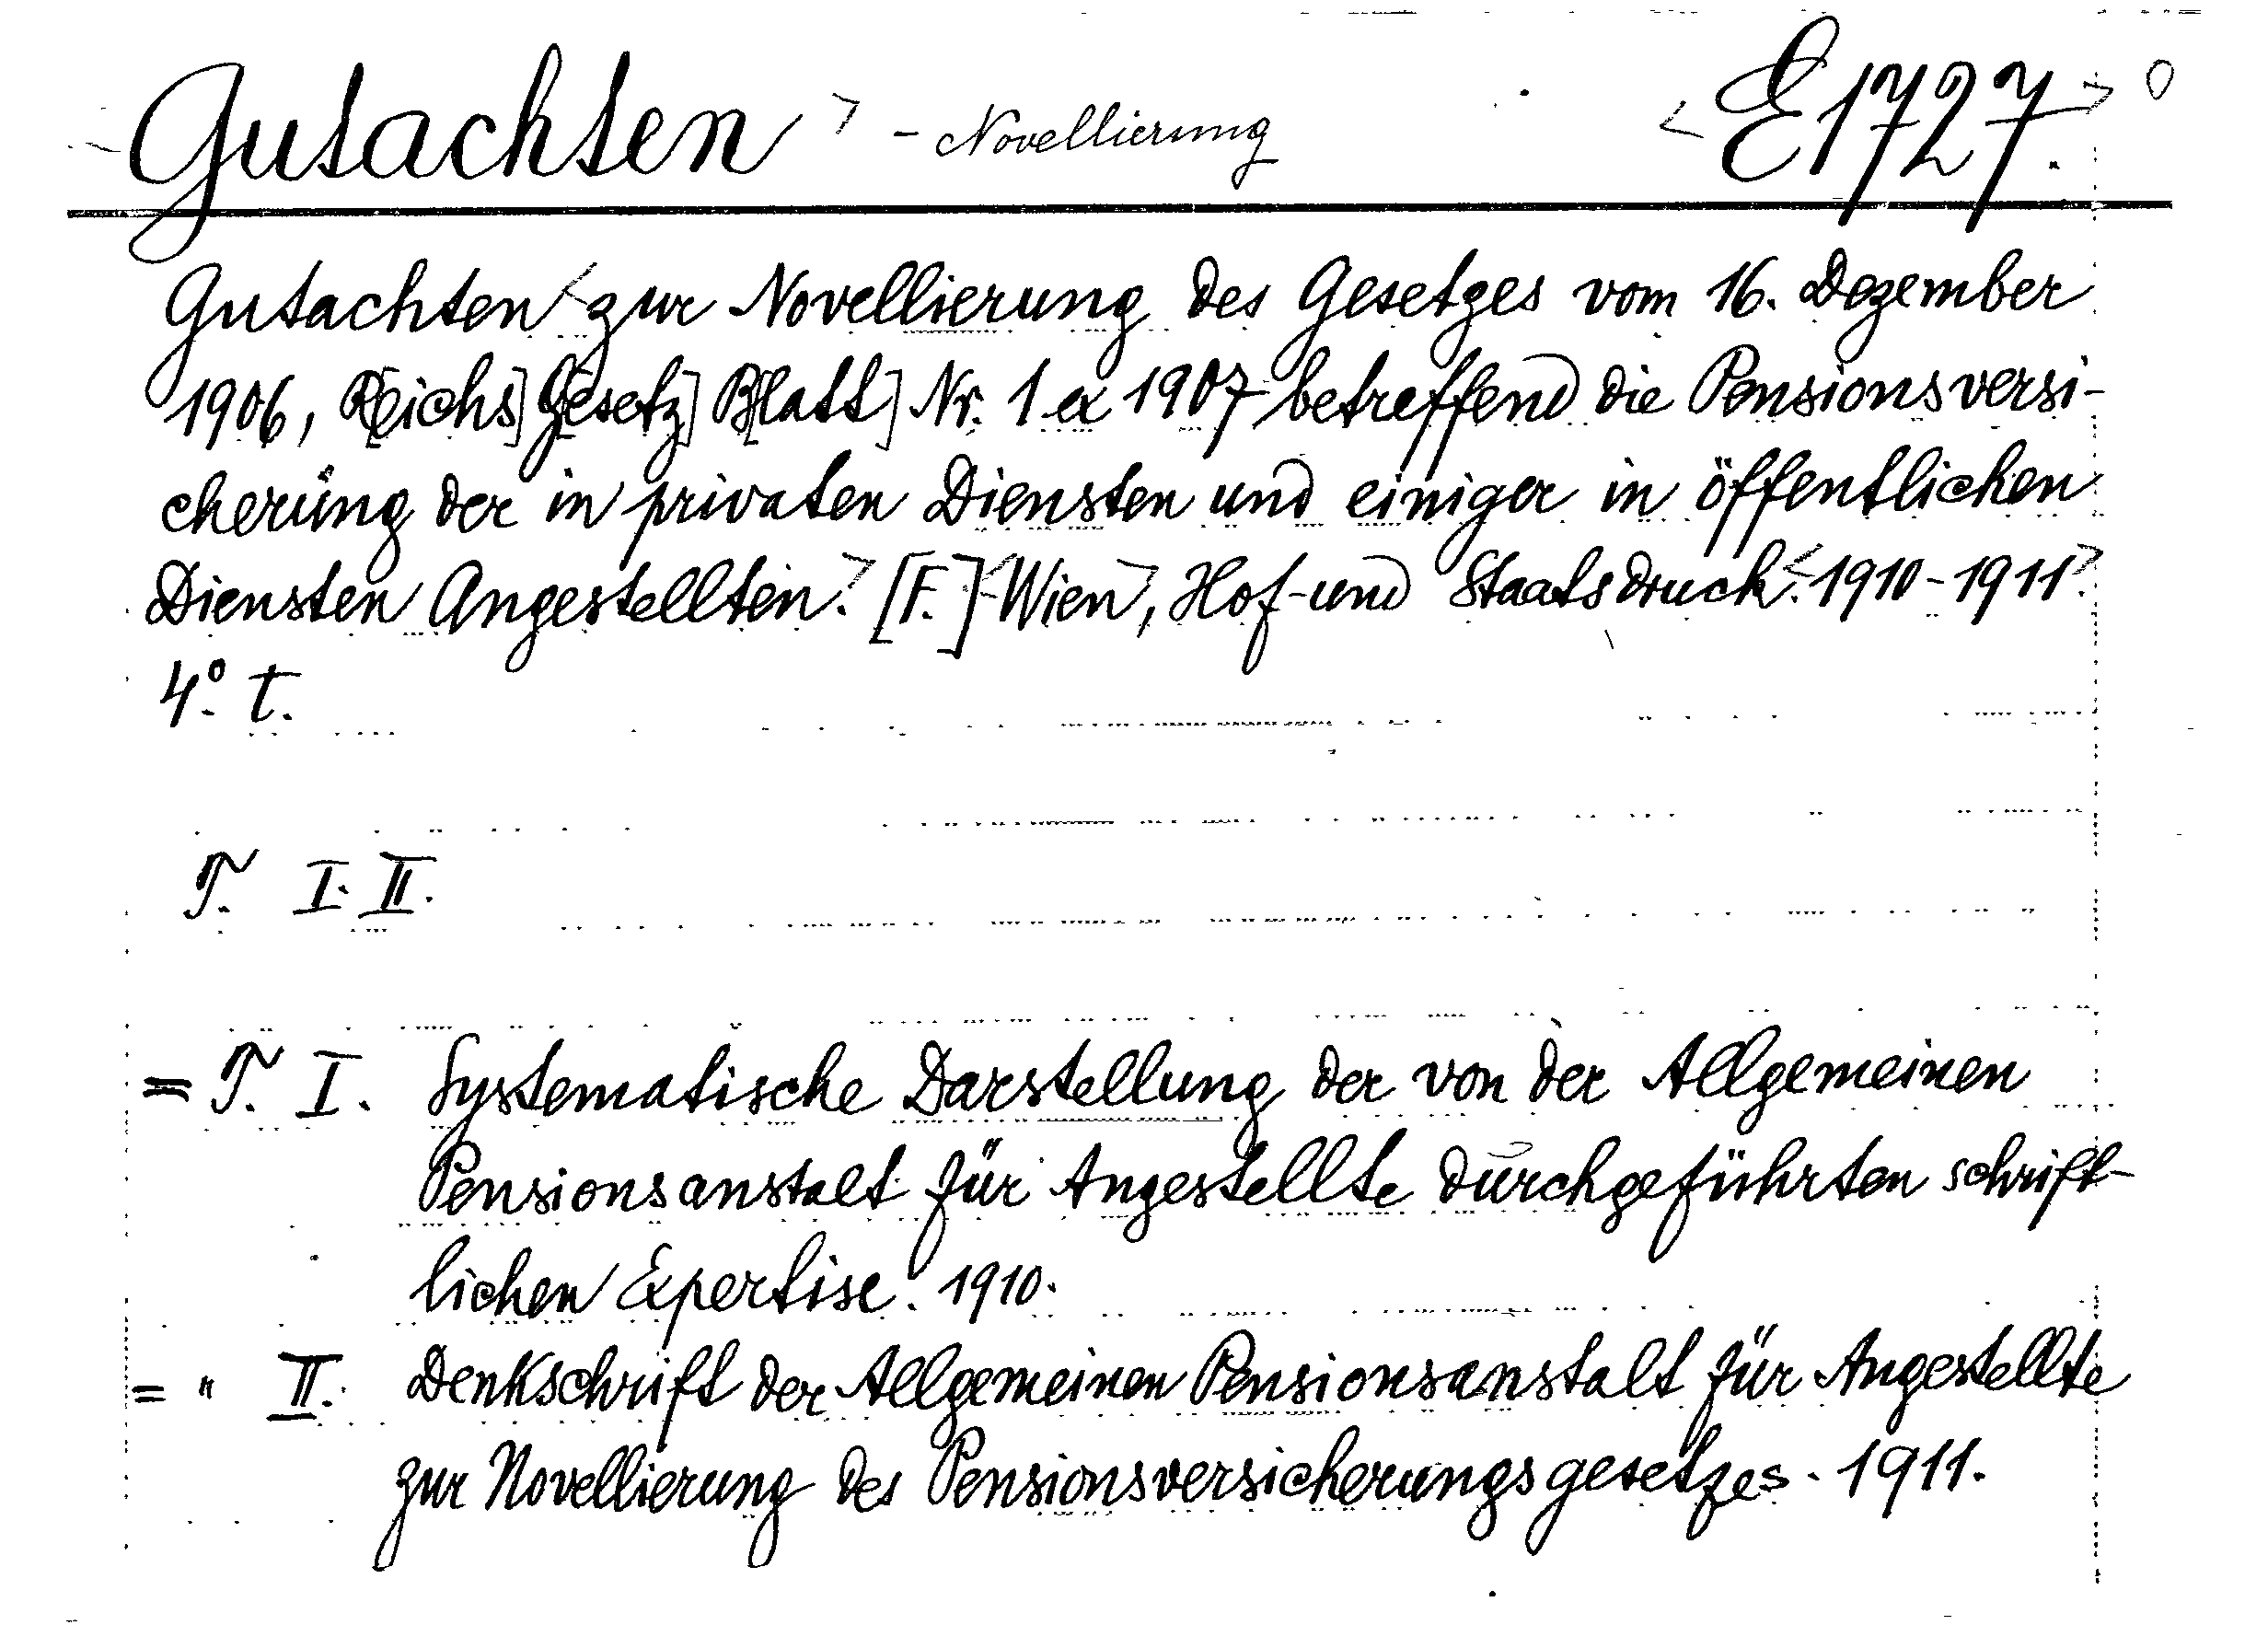 Gutachten - Novellierung E1727.
Gutachten zur Novellierung des Gesetzes vom 16. Dezember
1906, R[eichs] G[esetz] B[latt] Nr. 1 ex 1907 betreffend die Pensionsversi-
cherung der in privaten Diensten und einiger in öffentlichen
Diensten Angestellten. [F.] Wien, Hof- und Staatsdruck. 1910-1911.
4.° t.
T. I. II.
= T. I. Systematische Darstellung der von der Allgemeinen
Pensionsanstalt für Angestellte durchgeführten schrift-
lichen Expertise. 1910.
= " II. Denkschrift der Allgemeinen Pensionsanstalt für Angestellte
zur Novellierung des Pensionsversicherungsgesetzes. 1911.